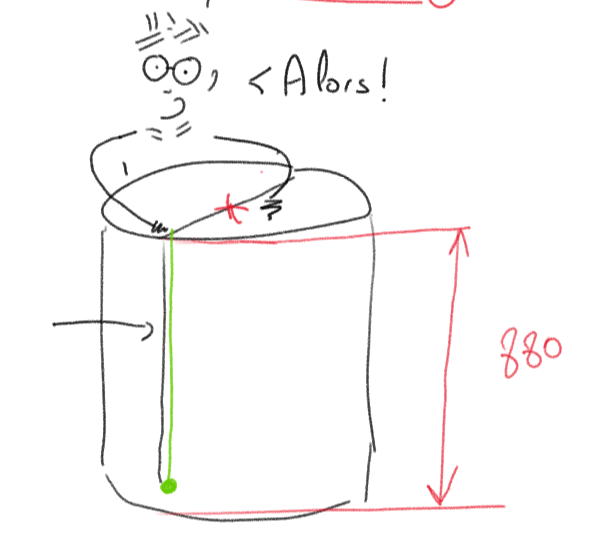 < Alors!
880